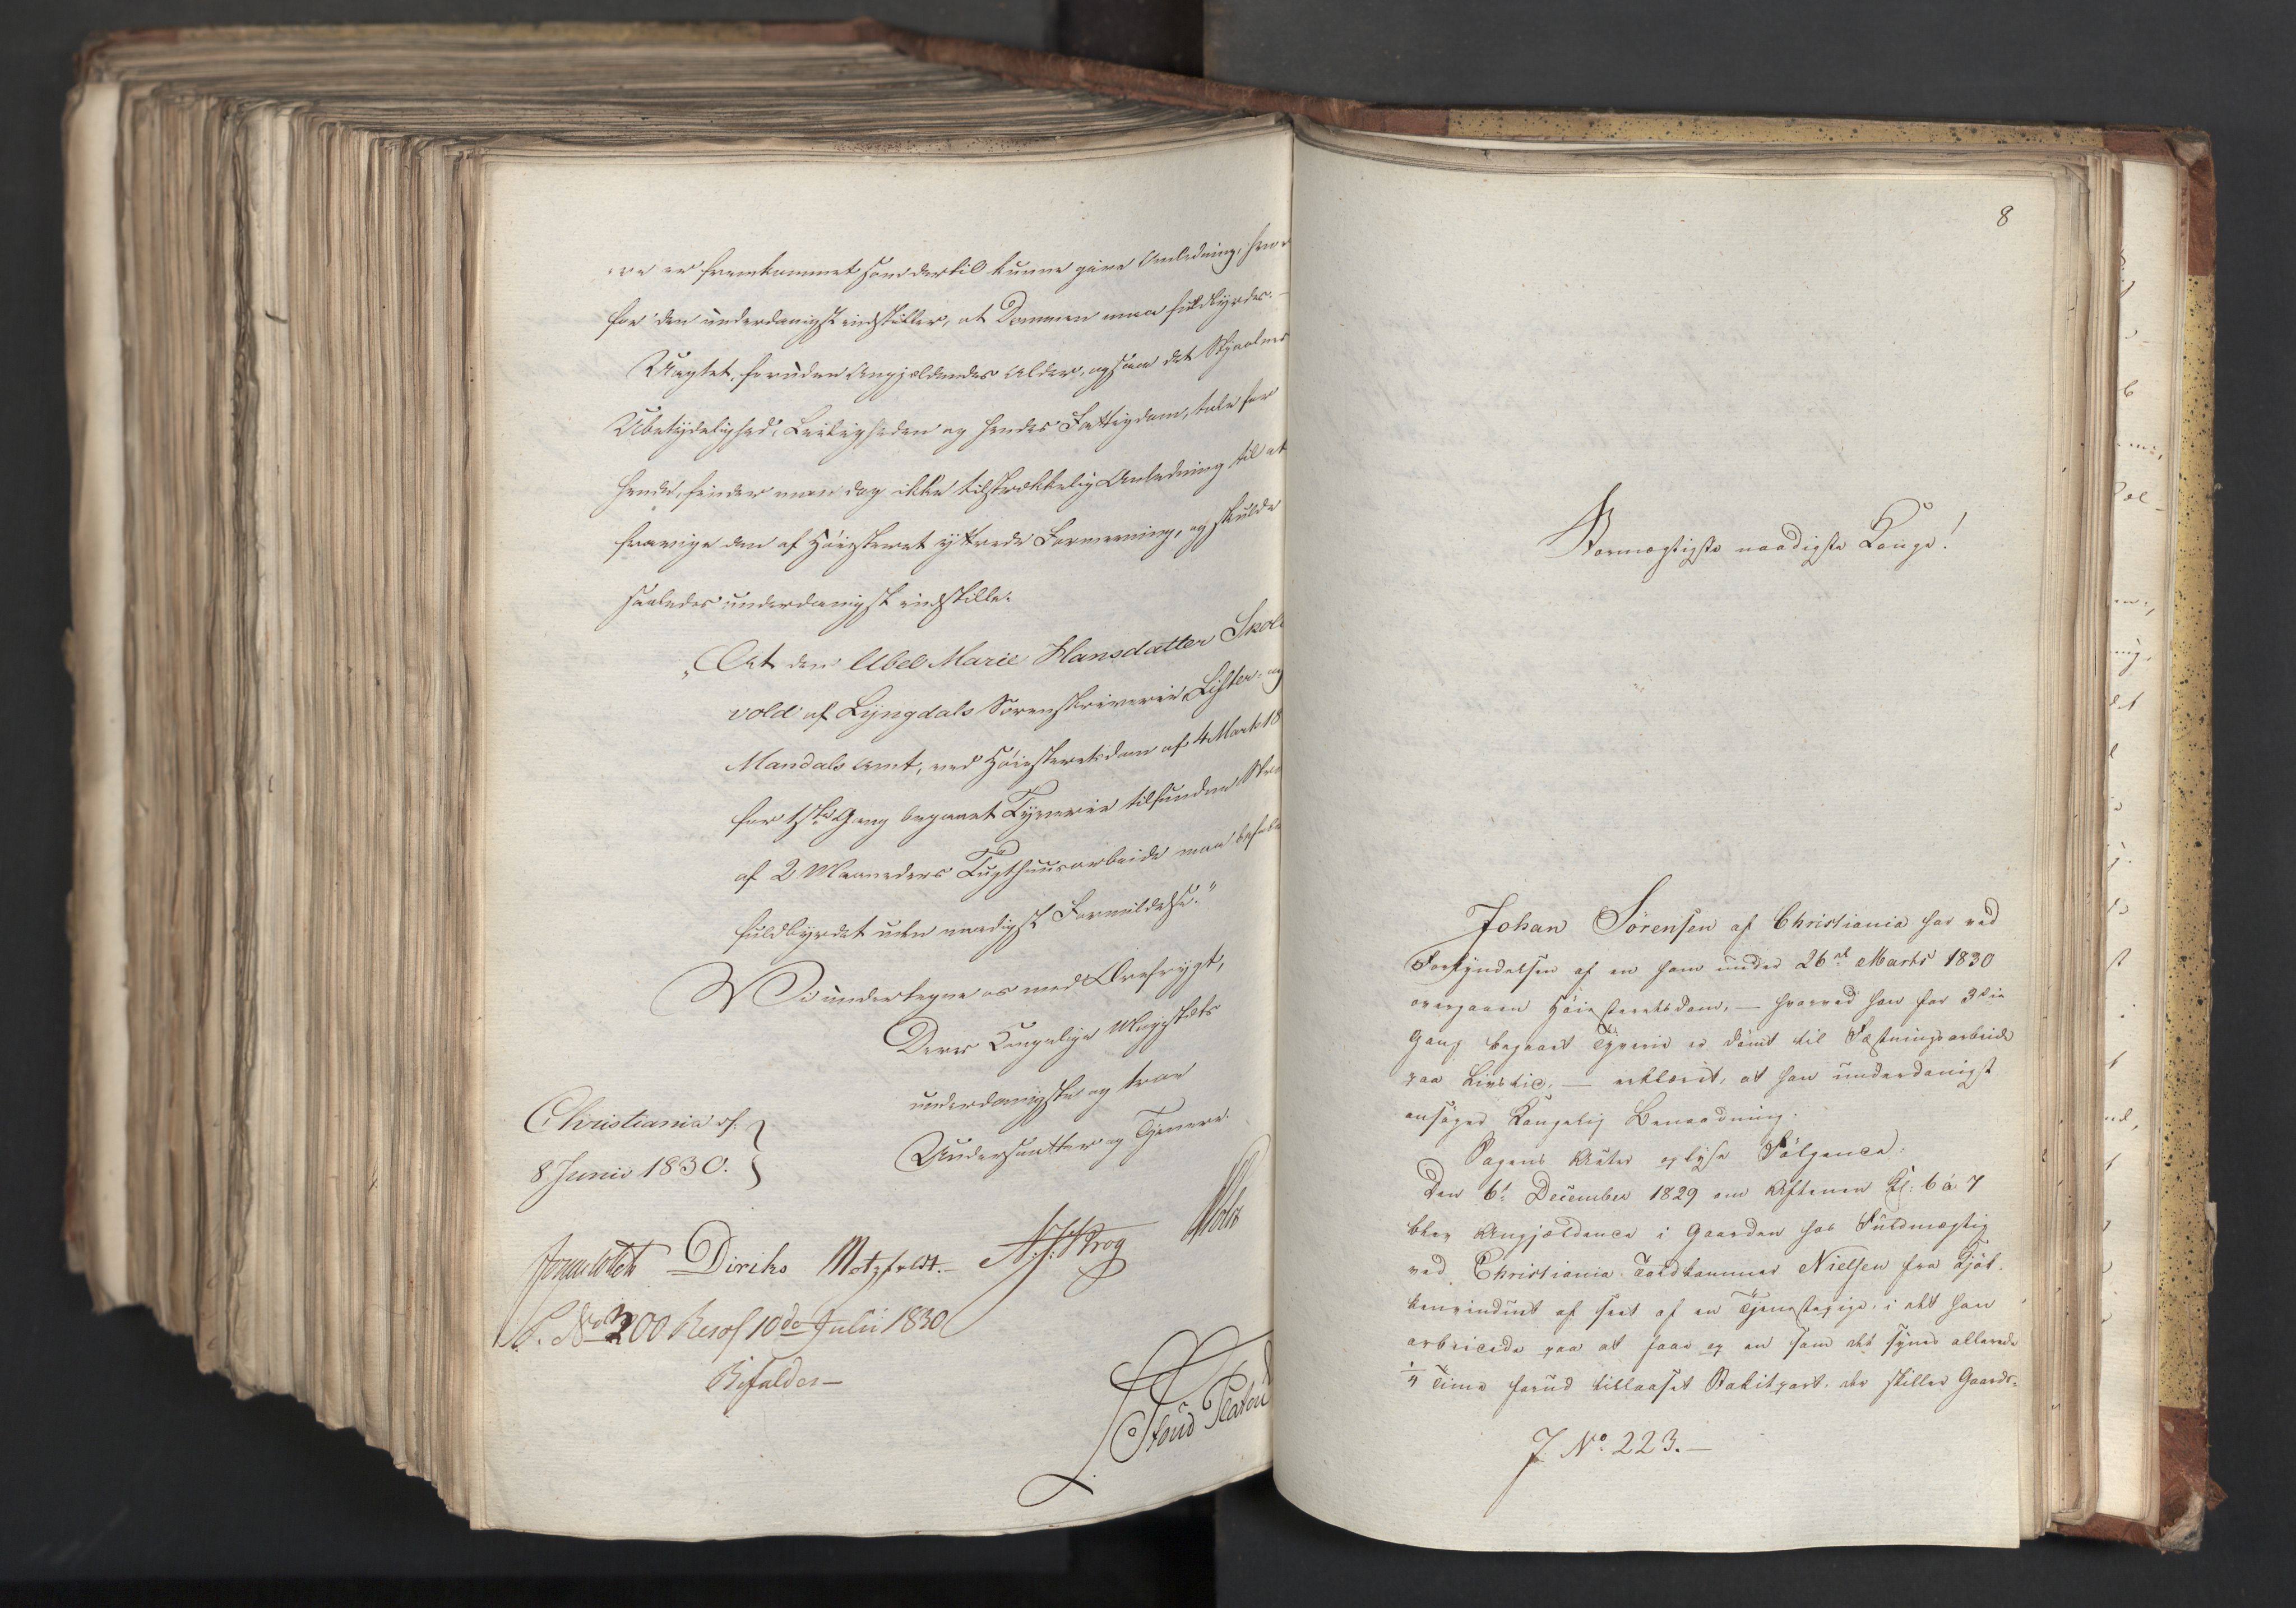 re er fremkommet som dertil kunne give Anledning, hvor
for den underdanigst indstiller, at Dommen maa fuldbyrdes.
Uagtet, foruden Angjældendes Alder, ogsaa det Stjaalnes
Ubetydelighed, Leiligheden og hendes Fattigdom, tale for
hende, finder man dog ikke tilstrækkelig Anledning til at
fravige den af Høiesteret yttrede Formening, og skulde
saaledes underdanigst indstille:
„At den Abel Marie Hansdatter Skole
vold af Lyngdals Sorenskriverie, Lister og
Mandals Amt, ved Høiesteretsdom af 4 Marts 18
for 1ste Gang begaaet Tyverie tilfundne Stra
af 2 Maaneders Tugthuusarbeide maa befale
fuldbyrdet uden naadigst Formildelse."
Vi undertegne os med Ærefrygt,
Deres Kongelige Majestæts
underdanigste og troe
Undersaatter og Tjenere.
Christiania d.
8 Junii 1830.
Diriks Motzfeldt. Krog Holst
P. No 200 Resol 10de Julii 1830
Bifaldes
Platou
8
Stormægtigste naadigste Konge!
Johan Sørensen af Christiania har ved
Forkyndelsen af en ham under 26de Marts 1830
overgaaen Høiesteretsdom, — hvorved han for 3die
Gang begaaet Tyverie er dømt til Fæstningsarbeide
paa Livstid, — erklæret, at han underdanigst
ansøger Kongelig Benaadning.
Sagens Akter oplyse Følgende:
Den 6te December 1829 om Aftenen Kl: 6 à 7
blev Angjældende i Gaarden hos Fuldmægtig
ved Christiania Toldkammer Nielsen fra Kjøk
kenvinduet af seet af en Tjenestepige, i det han
arbeidede paa at faae op en som det synes allerede
1/4 Time forud tillaaset Stakitport, der skiller Gaards-
J No. 223.—